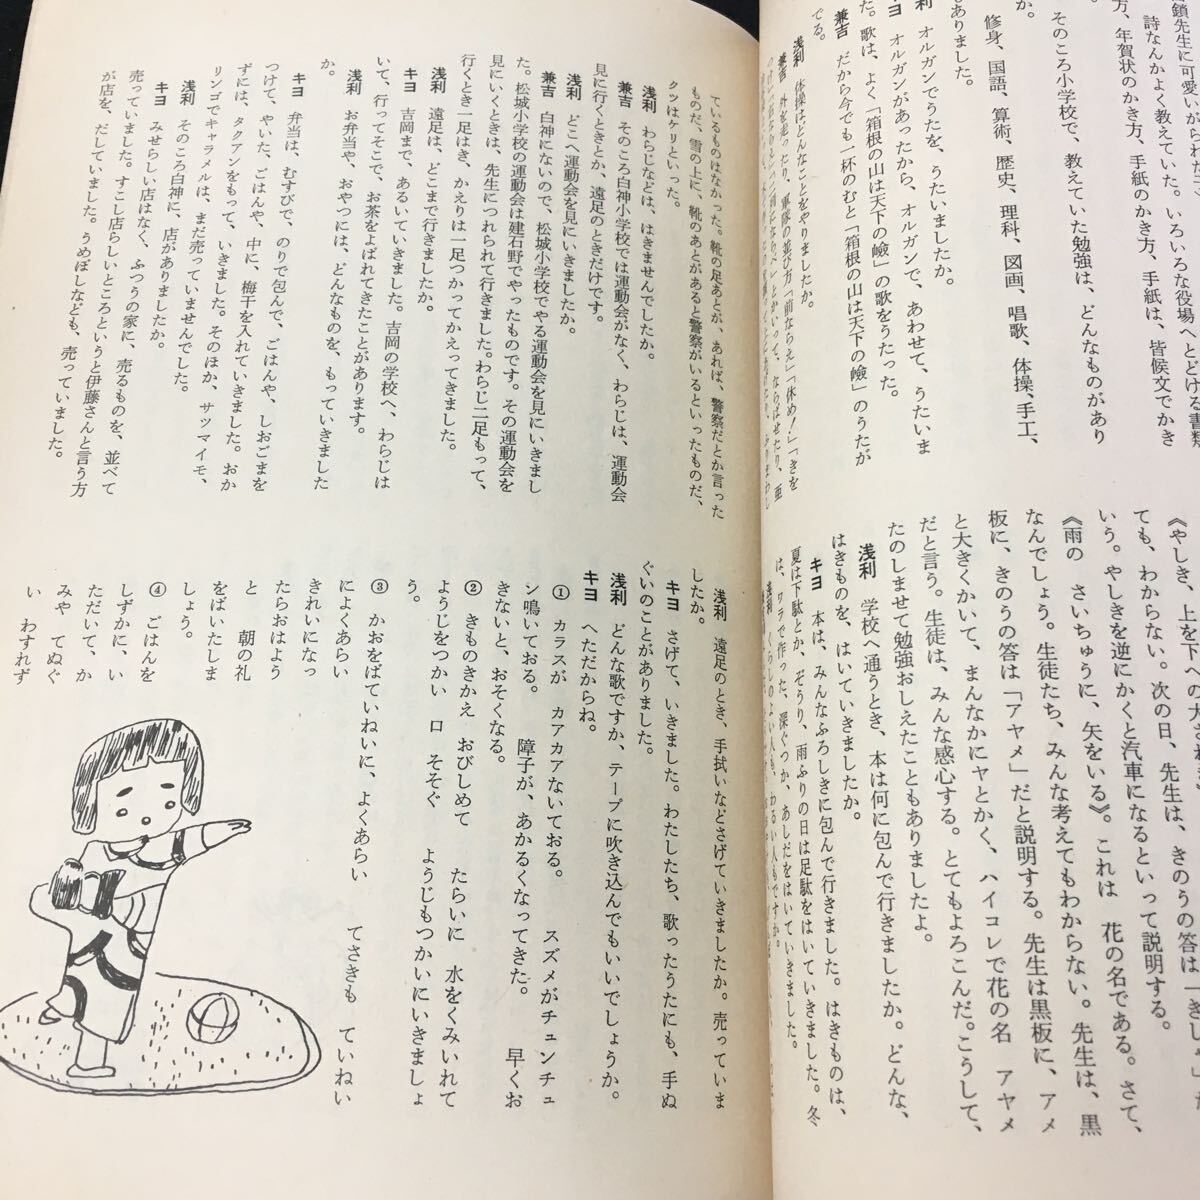 鎖先生に可愛いがられた
詩なんかよく教えていた。いろいろな役場へとどける書類
方、年賀状のかき方、手紙のかき方、手紙は、皆候文でかき
か。
そのころ小学校で、教えていた勉強は、どんなものがあり
修身、国語、算術、歴史、理科、図画、唱歌、体操、手工、
ありました。
利 オルガンでうたを、うたいましたか。
ヨ オルガンがあったから、オルガンで、あわせて、うたいま
た。歌は、よく「箱根の山は天下の嶮」の歌をうたった。
兼吉 だから今でも一杯のむと「箱根の山は天下の嶮」のうたが
でる。
浅利 体操は、どんなことをやりましたか。
兼吉 外を走ったり、軍隊の並び方「前ならえ」「休め！」「きを
《やしき、上を下への大さわぎ》
ても、わからない。次の日、先生は、きのうの答は「きしゃ」だ
いう。やしきを逆にかくと汽車になるといって説明する。
《雨の さいちゅうに、矢をいる》。これは 花の名である。さて、
なんでしょう。生徒たち、みんな考えてもわからない。先生は、黒
板に、きのうの答は「アヤメ」だと説明する。先生は黒板に、アメ
と大きくかいて、まんなかにヤとかく、ハイコレで花の名 アヤメ
だと言う。生徒は、みんな感心する。とてもよろこんだ。こうして、
たのしませて勉強おしえたこともありましたよ。
浅利 学校へ通うとき、本は何に包んで行きましたか。どんな、
はきものを、はいていきましたか。
キヨ 本は、みんなふろしきに包んで行きました。はきものは、
夏は下駄とか、ぞうり、雨ふりの日は足駄をはいていきました。冬
は、ワラで作った、深ぐつか、あしだをはいていきました。
ているものはなかった。靴の足あとが、あれば、警察だとか言った
ものだ、雪の上に、靴のあとがあると警察がいるといったものだ、
クツはケリといった。
浅利 わらじなどは、はきませんでしたか。
兼吉 そのころ白神小学校では運動会がなく、わらじは、運動会
見に行くときとか、遠足のときだけです。
浅利 どこへ運動会を見にいきましたか。
兼吉 白神にないので、松城小学校でやる運動会を見にいきまし
た。松城小学校の運動会は建石野でやったものです。その運動会を
見にいくときは、先生につれられて行きました。わらじ二足もって、
行くとき一足はき、かえりは一足つかってかえってきました。
浅利 遠足は、どこまで行きましたか。
キヨ 吉岡まで、あるいていきました。吉岡の学校へ、わらじは
いて、行ってそこで、お茶をよばれてきたことがあります。
浅利 お弁当や、おやつには、どんなものを、もっていきました
か。
キヨ 弁当は、むすびで、のりで包んで、ごはんや、しおごまを
つけて、やいた、ごはんや、中に、梅干を入れていきました。おか
ずには、タクアンをもって、いきました。そのほか、サツマイモ、
リンゴでキャラメルは、まだ売っていませんでした。
浅利 そのころ白神に、店がありましたか。
キヨ みせらしい店はなく、ふつうの家に、売るものを、並べて
売っていました。すこし店らしいところというと伊藤さんと言う方
が店を、だしていました。うめぼしなども、売っていました。
浅利 遠足のとき、手拭いなどさげていきましたか。売っていま
したか。
キヨ さげて、いきました。わたしたち、歌ったうたにも、手ぬ
ぐいのことがありました。
浅利 どんな歌ですか、テープに吹き込んでもいいでしょうか。
キヨ へただからね。
① カラスが カアカアないておる。 スズメがチュンチュ
ン鳴いておる。 障子が、あかるくなってきた。 早くお
きないと、おそくなる。
② きものきかえ おびしめて たらいに 水をくみいれて
ようじをつかい 口 そそぐ ようじもつかいにいきましょ
う。
③ かおをばていねいに、よくあらい てさきも ていねい
によくあらい
きれいになっ
たらおはよう
と 朝の礼
をばいたしま
しょう。
④ ごはんを
しずかに、い
ただいて、か
みや てぬぐ
い わすれず